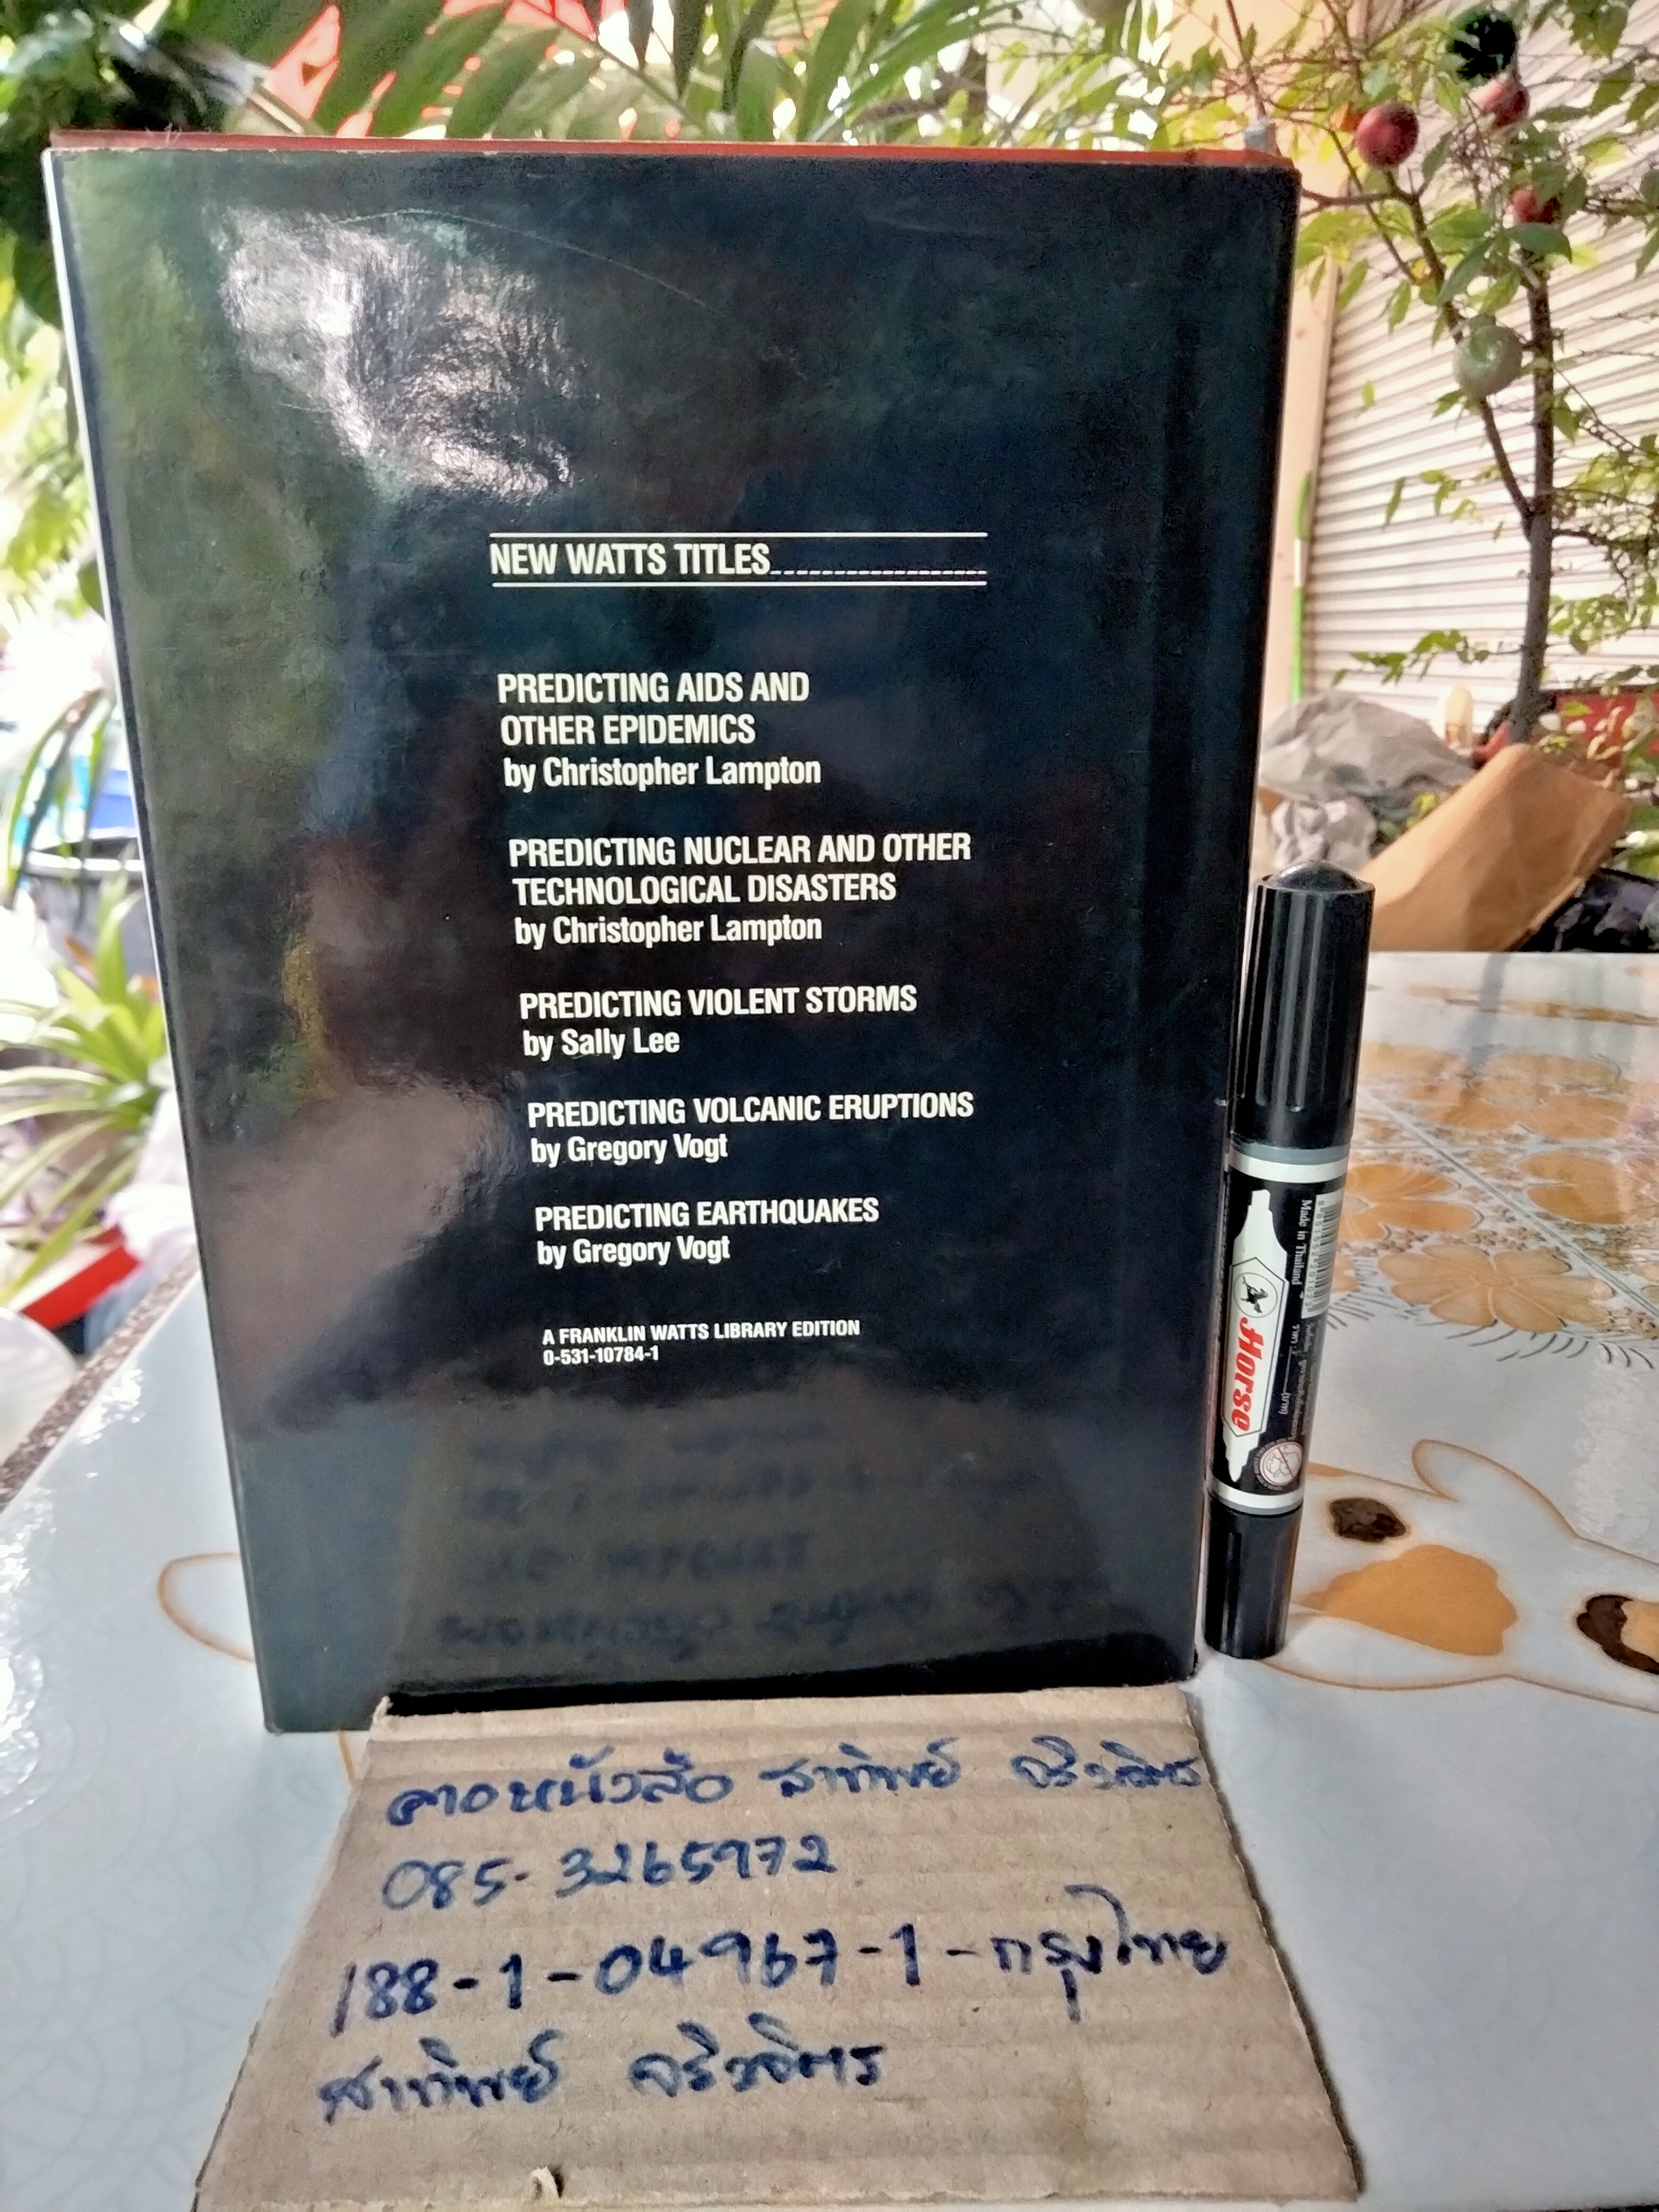 NEW WATTS TITLES
PREDICTING AIDS AND
OTHER EPIDEMICS
by Christopher Lampton
PREDICTING NUCLEAR AND OTHER
TECHNOLOGICAL DISASTERS
by Christopher Lampton
PREDICTING VIOLENT STORMS
by Sally Lee
PREDICTING VOLCANIC ERUPTIONS
by Gregory Vogt
PREDICTING EARTHQUAKES
by Gregory Vogt
A FRANKLIN WATTS LIBRARY EDITION
0-531-10784-1
Made in Thailand
Horse
หนังสือ สาทิพย์
085-3265972
188-1-04967-1-กรุงไทย
สาทิพย์